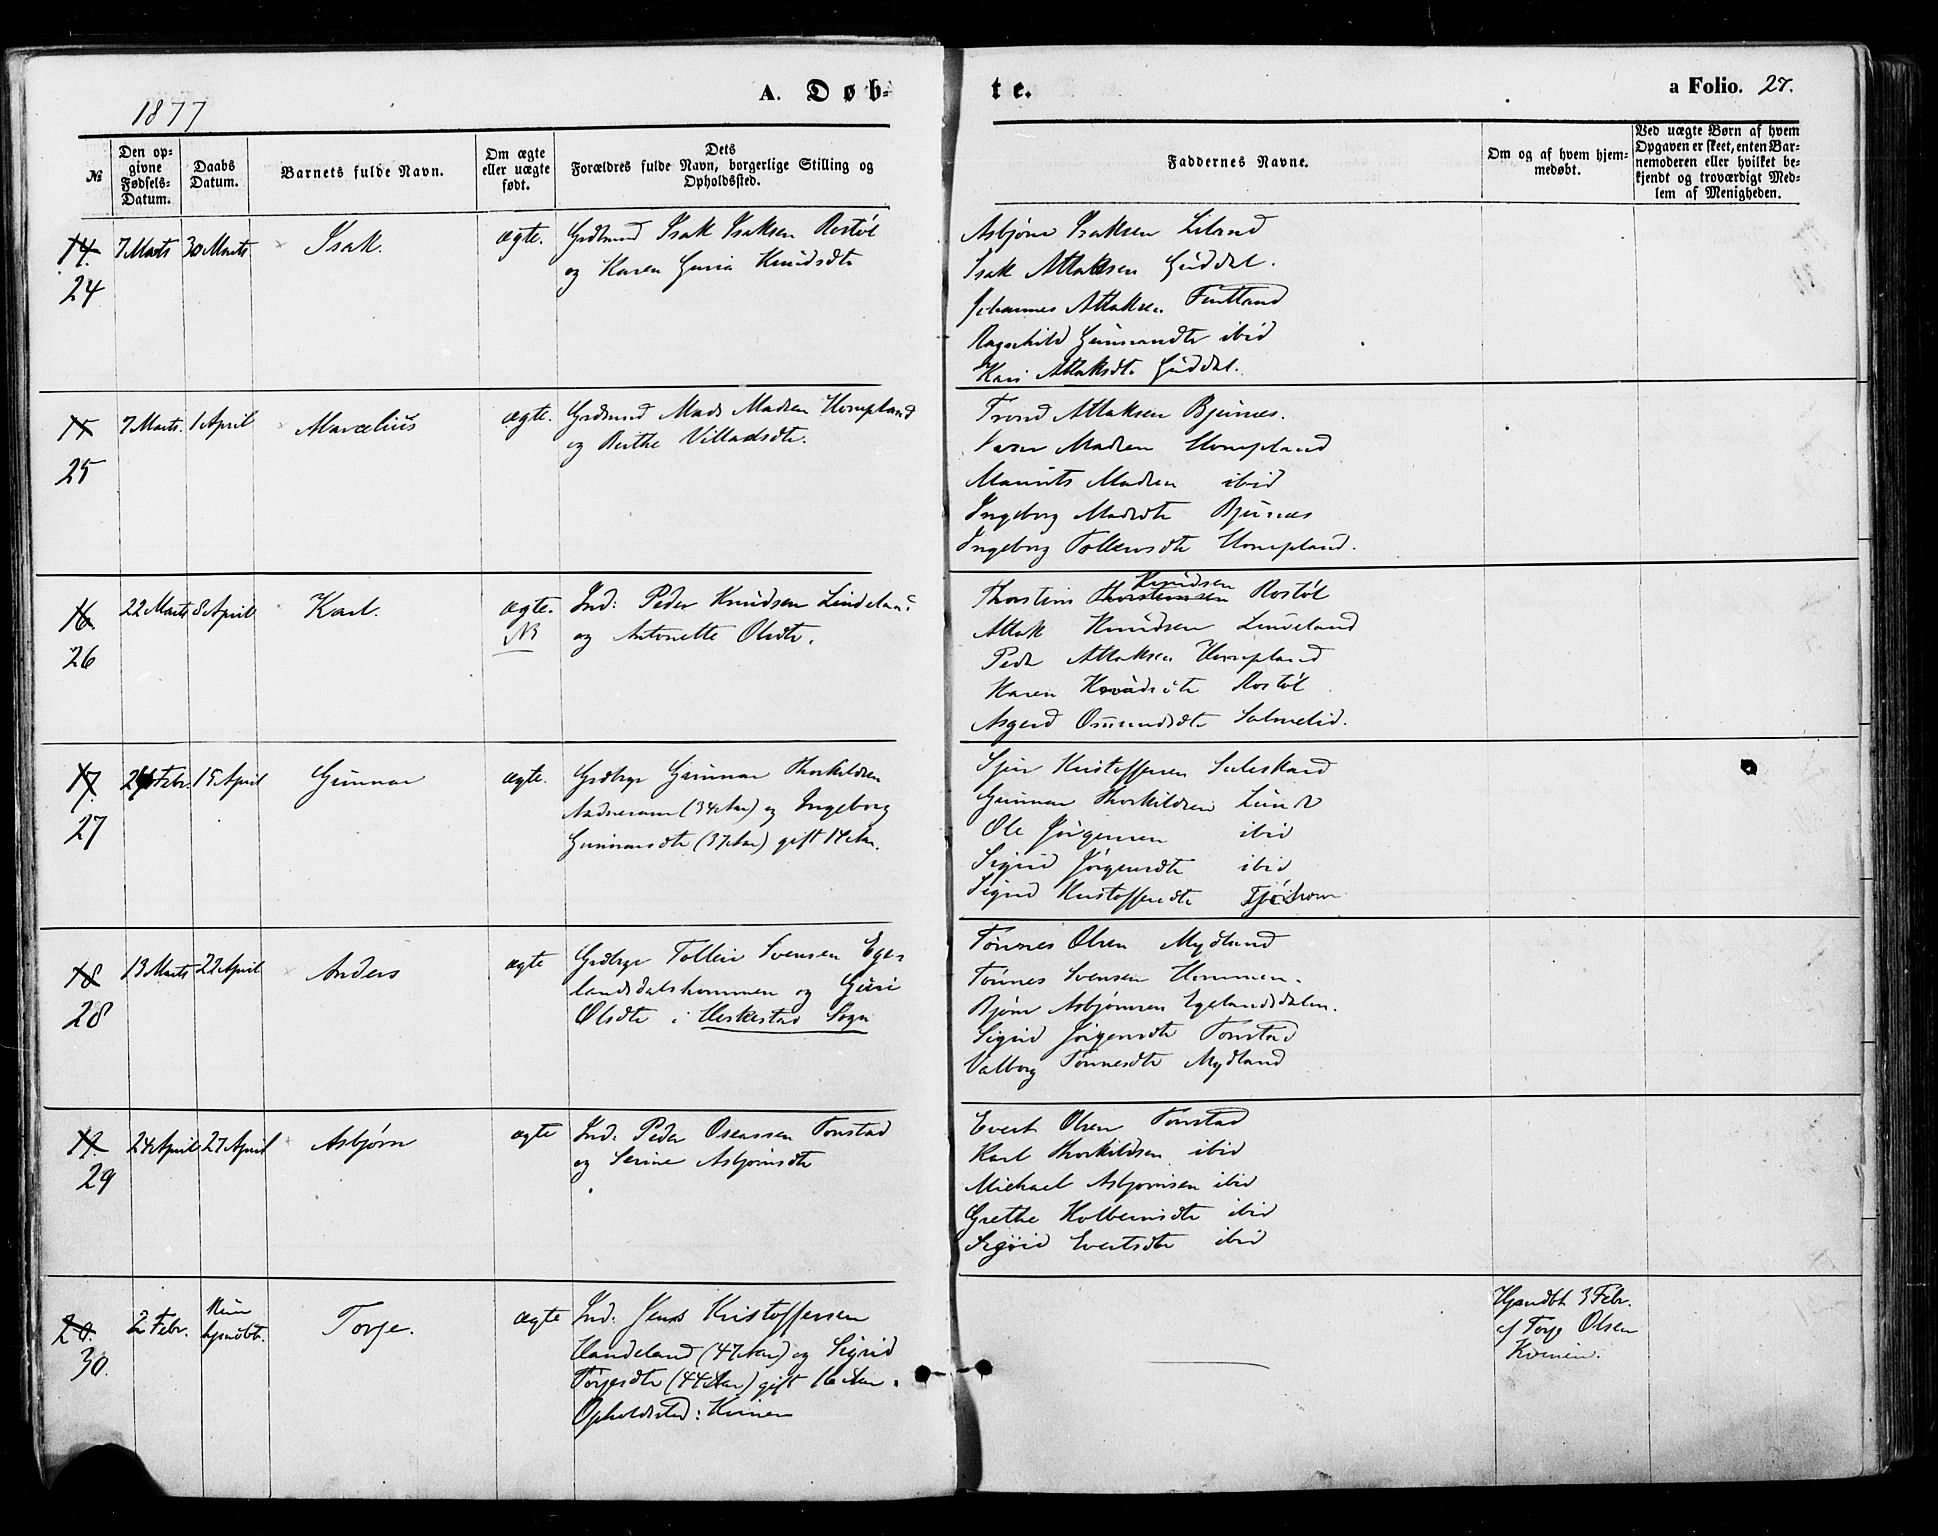 1877
A. Døb-
te.
a Folio. 27.
№
Den op-
givne
Fødsels-
Datum.
Daabs
Datum.
Barnets fulde Navn.
Om ægte
eller uægte
født.
Dets
Forældres fulde Navn, borgerlige Stilling og
Opholdssted.
Faddernes Navne.
Om og af hvem hjem-
medøbt.
Ved uægte Børn af hvem
Opgaven er skeet, enten Bar-
nemoderen eller hvilket be-
kjendt og troværdigt Med-
lem af Menigheden.
14.
24
7 Marts
30 Marts
Isak.
ægte.
Grdmnd Isak Isaksen Rostøl
og Karen Guria Knudsdtr
Asbjørn Isaksen Liland
Isak Atlaksen Guddal.
Johannes Atlaksen Fintland
Ragnhild Gunnarsdtr ibid
Kari Atlaksdtr Guddal.
15
25
7 Marts.
1 April
Marcelius
ægte.
Grdmnd Mads Madsen Hompland
og Berthe Villadsdtr.
Trond Atlaksen Bjunes.
Madsen Hompland
Maurits Madsen ibid
Ingeborg Madsdtr Bjunes
Ingeborg Tolleivsdtr Hompland.
16.
26
22 Marts
8 April
Karl.
ægte.
NB
Ind: Peder Knudsen Lindeland
og Antonette Olsdtr.
Knudsen
Thorstein Thorsteinsen Rostøl
Atlak Knudsen Lindeland
Peder Atlaksen Hompland
Karen Knudsdtr Rostøl
Asgerd Osmundsdtr Salmelid.
17.
27
24 Febr.
15 April
Gunnar
ægte.
Grdbrgr Gunnar Thorkildsen
Aadneram (34 Aar) og Ingeborg
Gunnarsdtr (37 Aar) gift 14 Aar.
Kristoffersen Suleskard
Gunnar Thorkildsen Lund
Ole Jørgensen ibid
Sigrid Jørgensdtr ibid
Sigrid Kristoffersdtr Tjørhom
18
28
13 Marts
22 April
Anders
ægte
Grdbrgr Tolleiv Svensen Ege-
landsdalshommen og Guri
Olsdtr i Heskestad Sogn
Tønnes Olsen Mydland
Tønnes Svensen Hommen.
Bjørn Asbjørnsen Egelandsdalen.
Sigrid Jørgensdtr Tonstad
Valborg Tønnesdtr Mydland
19.
29
24 April
27 April
Asbjørn
ægte
Ind: Peder Oseassen Tonstad
og Serine Asbjørnsdtr
Evert Olsen Tonstad
Karl Thorkildsen ibid
Michael Asbjørnsen ibid
Grethe Kolbeinsdtr ibid
Sigrid Evertsdtr ibid
20.
30.
2 Febr.
Kun
hjmdbt.
Torje.
ægte
Ind. Jens Kristoffersen
Haudeland (47 Aar) og Sigrid
Torjesdtr (44 Aar) gift 16 Aar.
Opholdssted: Kvinen
Hjmdbt 3 Febr.
af Torje Olsen
Kvinen.